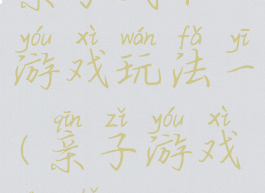 yóu xì wán fǎ yī
游戏玩法一
qīn zǐ yóu xì
（亲子游戏